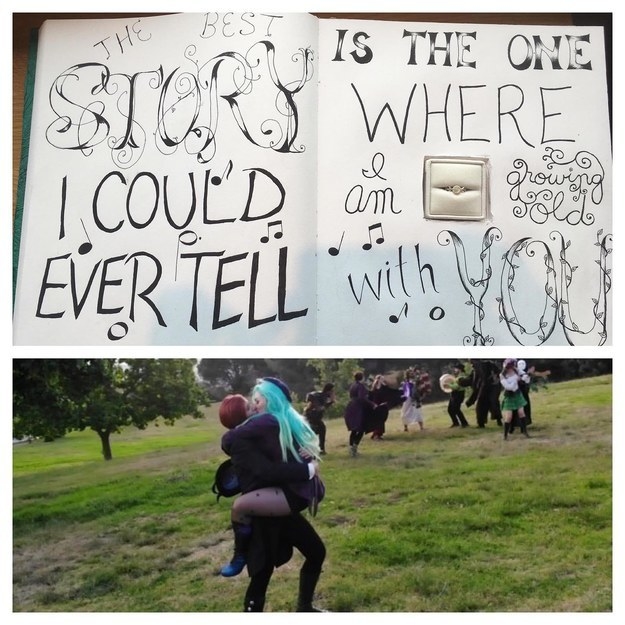 THE BEST
STORY
I COULD
EVER TELL
IS THE ONE
WHERE
I am growing old
with YOU